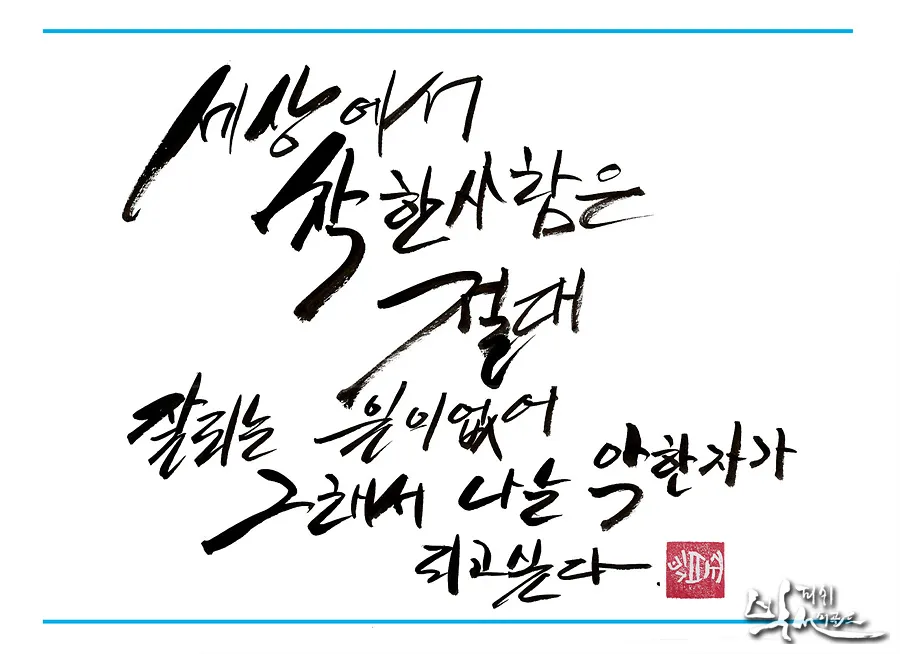 세상에서
착한사람은
절대
잘되는 일이없어
그래서 나는 악한자가
되고싶다.